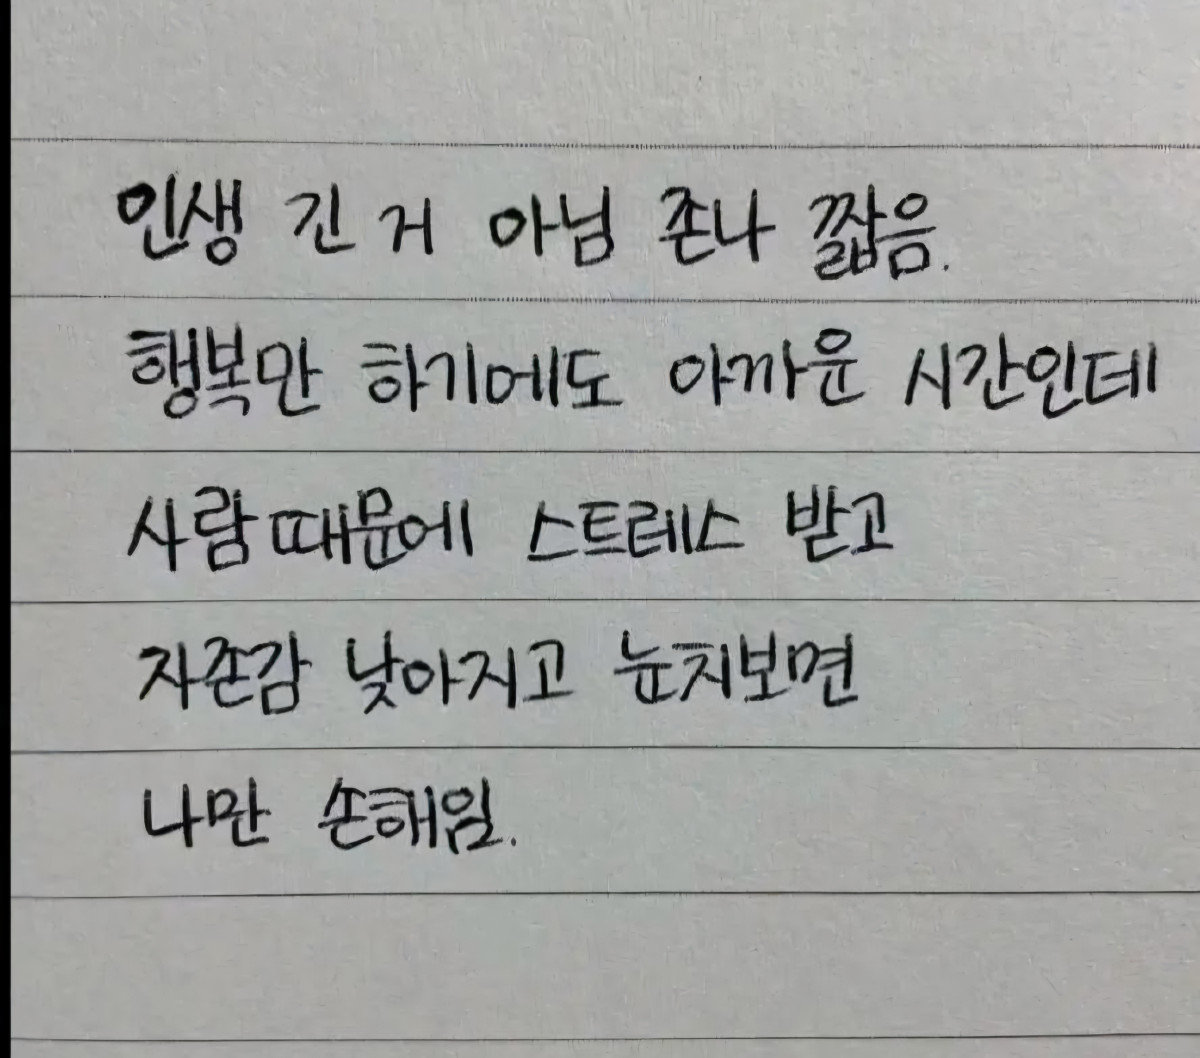 인생 긴 거 아님 존나 짧음.
행복만 하기에도 아까운 시간인데
사람때문에 스트레스 받고
자존감 낮아지고 눈치보면
나만 손해임.